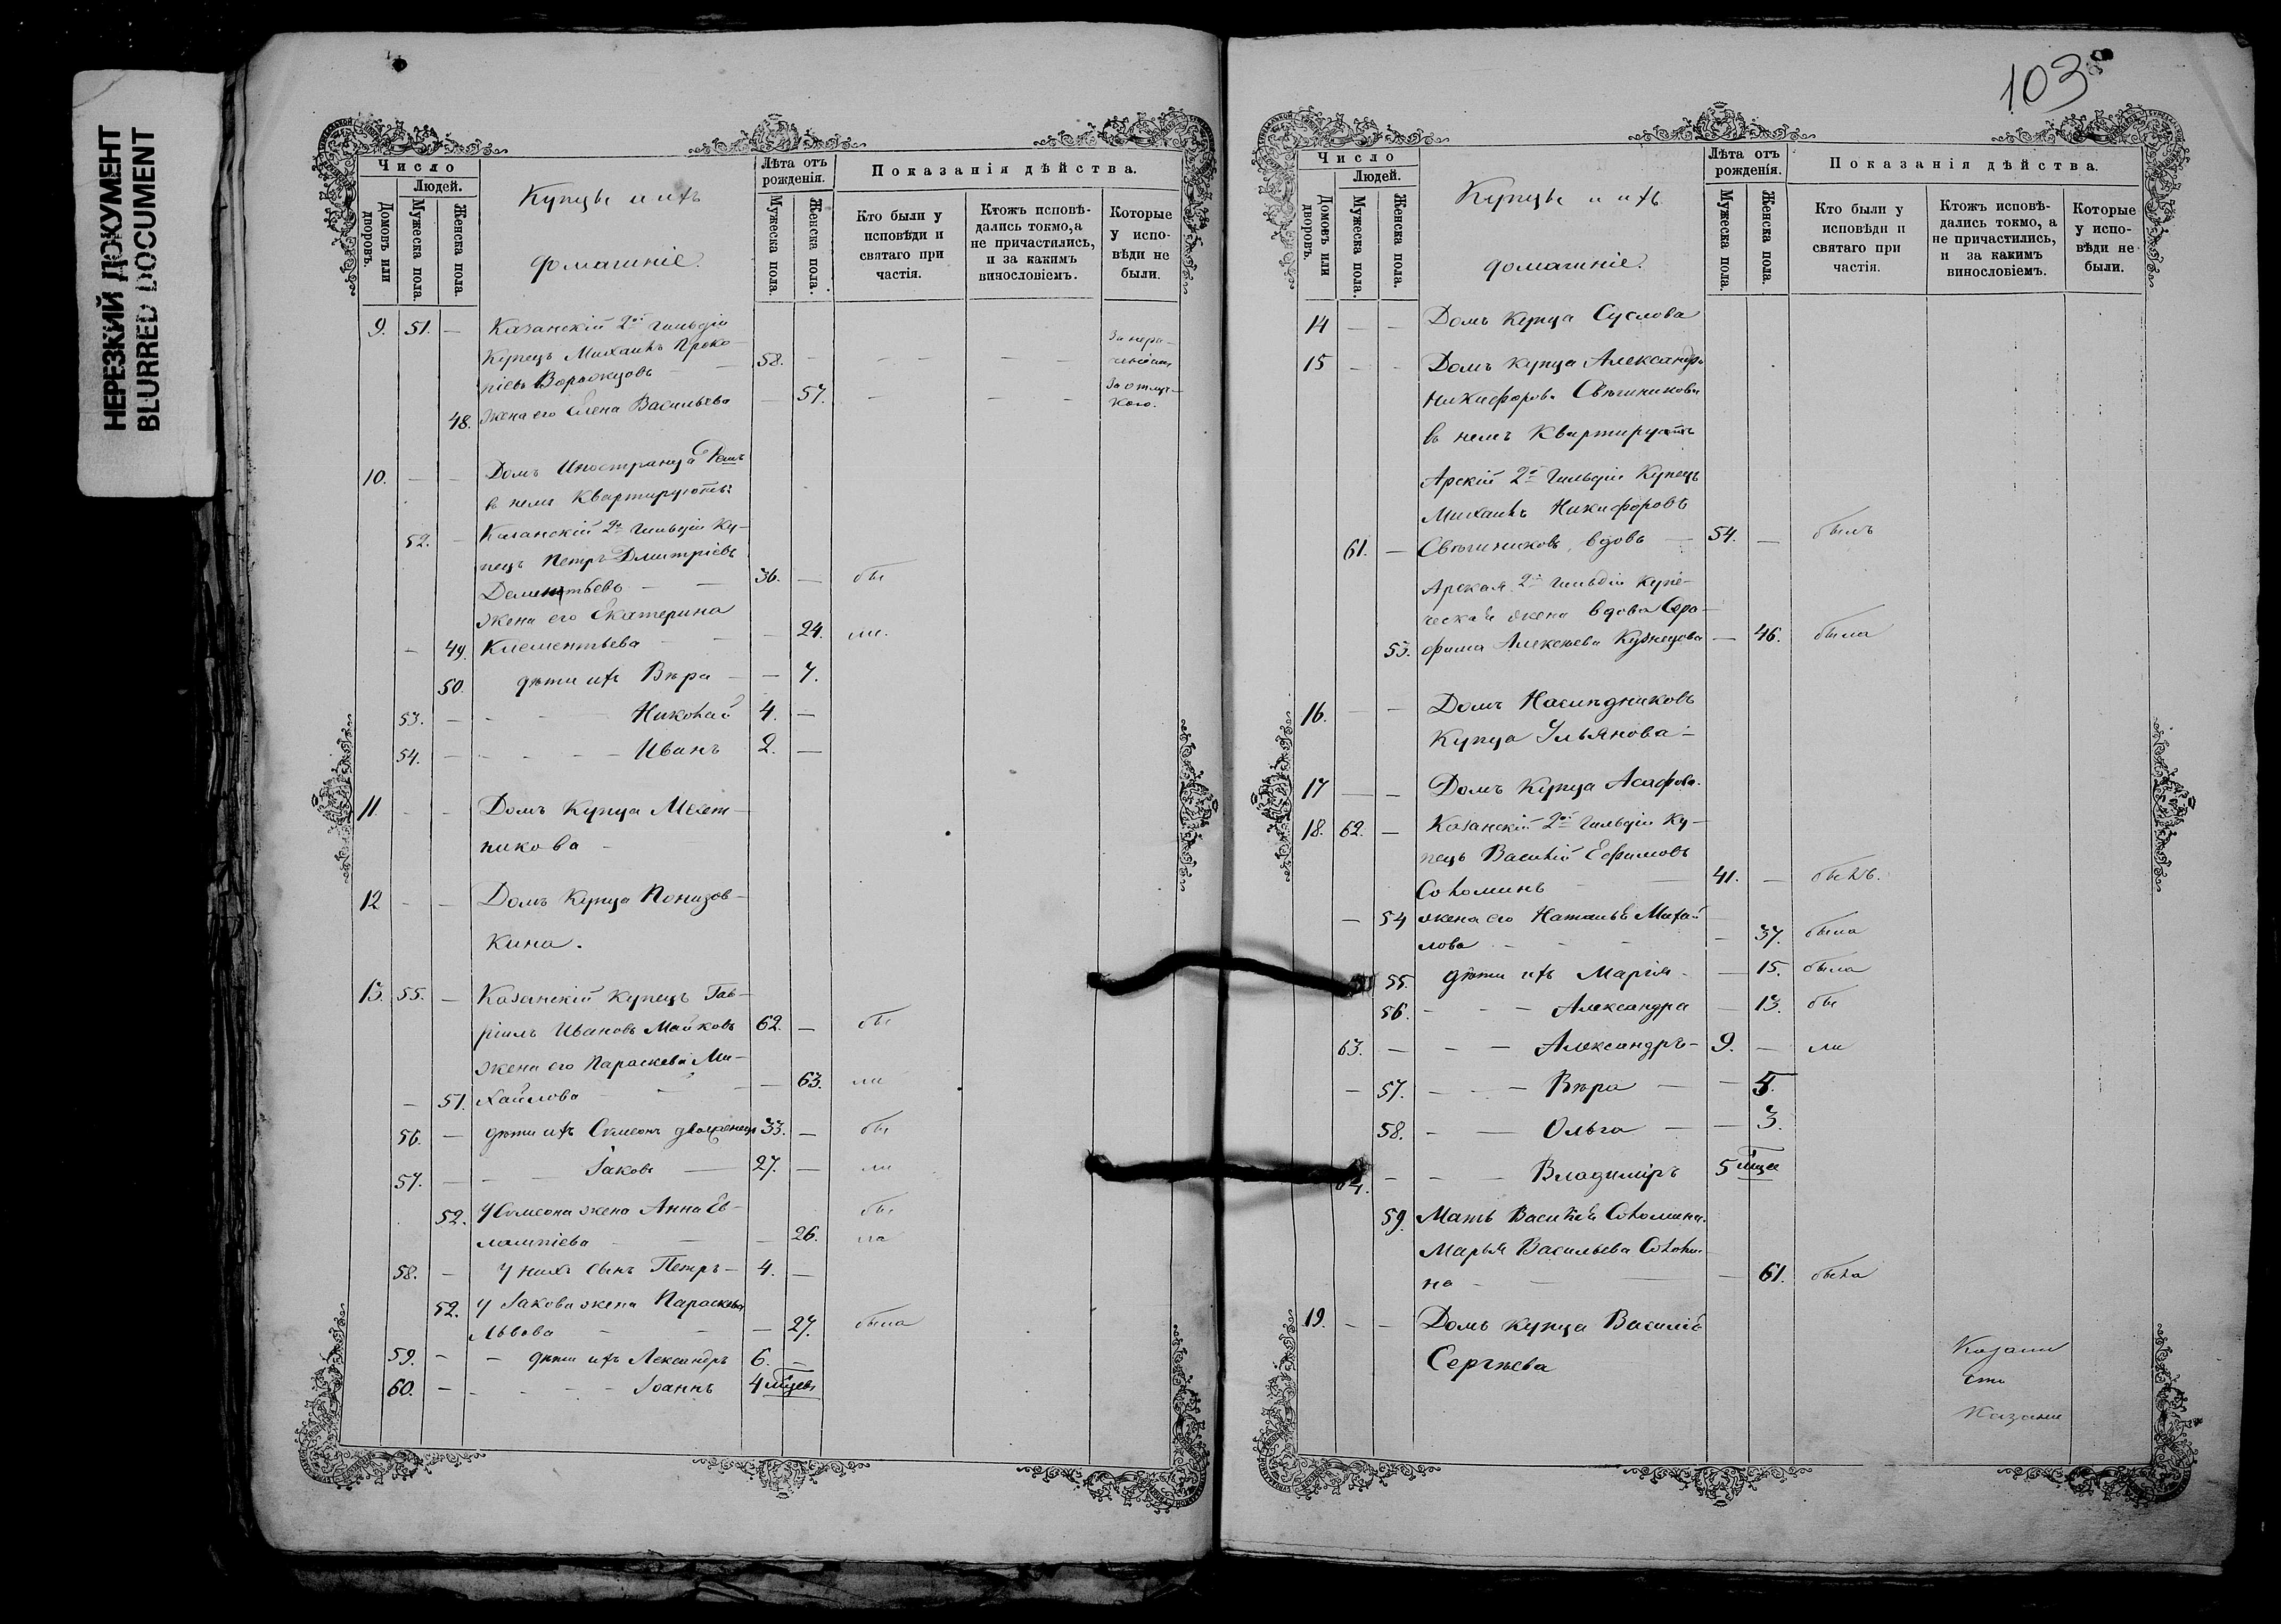 НЕРЕЗКИЙ ДОКУМЕНТ
BLURRED DOCUMENT
Число
Людей.
Домовъ или дворовъ.
Мужеска пола.
Женска пола.
Купцы и ихъ
домашніе.
Лѣта отъ рожденія.
Мужеска пола.
Женска пола.
Показанія дѣйства.
Кто были у исповѣди и святаго при частія.
Ктожъ исповѣ- дались токмо, а не причастились, и за какимъ винословіемъ.
Которые у испо- вѣди не были.
9. 51. — Казанскій 2ой гильдіи
Купецъ Михаилъ Проко-
піевъ 58. —
48. жена его Елена Васильева — 57. За отлуч-
кою.
10. — — Домъ Иностранца
въ немъ Квартируютъ:
52. — Казанскій 2й гильдіи Ку-
пецъ Петръ Дмитріевъ
Дементьевъ — 36. — бы
жена его Екатерина
— 49. Клементьева — 24. ли.
50. дѣти ихъ Вѣра — — 7.
53. — Николай 4. —
54. — Иванъ 2. —
11. — — Домъ Купца
никова
12 — — Домъ Купца Понизов-
кина.
13. 55. — Казанскій Купецъ Гав-
ріилъ Ивановъ Майковъ 62. — бы
жена его Параскева Ми-
— 51. хайлова — 63. ли
56. — дѣти ихъ Симеонъ 33. — бы
57. — Іаковъ — 27. — ли
52. У Симеона жена Анна Ев- бы
лампіева — 26. ла
58. — У нихъ сынъ Петръ — 4. —
52. У Іакова жена Параскева
Львова — 27. была
59. — — дѣти ихъ Александръ 6. —
60. — Іоаннъ 4 мѣсяц.
103
Число
Людей.
Домовъ или дворовъ.
Мужеска пола.
Женска пола.
Купцы и ихъ
домашніе.
Лѣта отъ рожденія.
Мужеска пола.
Женска пола.
Показанія дѣйства.
Кто были у исповѣди и святаго при частія.
Ктожъ исповѣ- дались токмо, а не причастились, и за какимъ винословіемъ.
Которые у испо- вѣди не были.
14 — — Домъ Купца Суслова
15 — — Домъ Купца Александра
Никифорова Свѣшникова
въ немъ Квартируютъ
Арскій 2й гильдіи Купецъ
Михаилъ Никифоровъ
61. — Свѣшниковъ, вдовъ — 54. — былъ
Арская 2й гильдіи купе-
ческая жена вдова Сера-
53. фима Алексѣева Кузнецова — 46. была
16. — — Домъ Наслѣдниковъ
Купца Ульянова —
17 — — Домъ Купца Асафова.
18. 62. — Казанскій 2ой гильдіи Ку-
пецъ Василій Ефимовъ
Соломинъ — 41. — былъ.
— 54 жена его Наталья Михай
лова — 37. была
55. дѣти ихъ Марія — — 15. была
56. — Александра — 13. бы
63. — Александръ — 9. — ли
— 57. — Вѣра — — 5.
58. — Ольга — — 3.
64. — Владиміръ 5 мѣсяц
59. Мать Василія Соломина.
Марья Васильева Соломи-
на — — 61. была
19. — — Домъ Купца Василія
Сергѣева
Казани
Казани